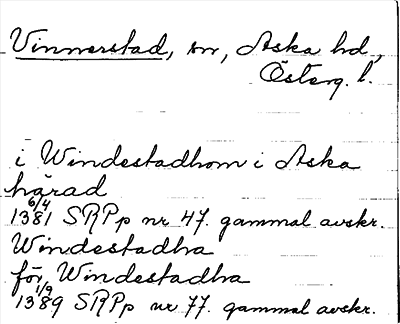 Vinnerstad, sn, Aska hd,
Österg. l.
i Windestadhom i Aska
härad
6/4 1381 SRPp nr 47. gammal avskr.
Windestadha
för Windestadha
1/9 1389 SRPp nr 77. gammal avskr.